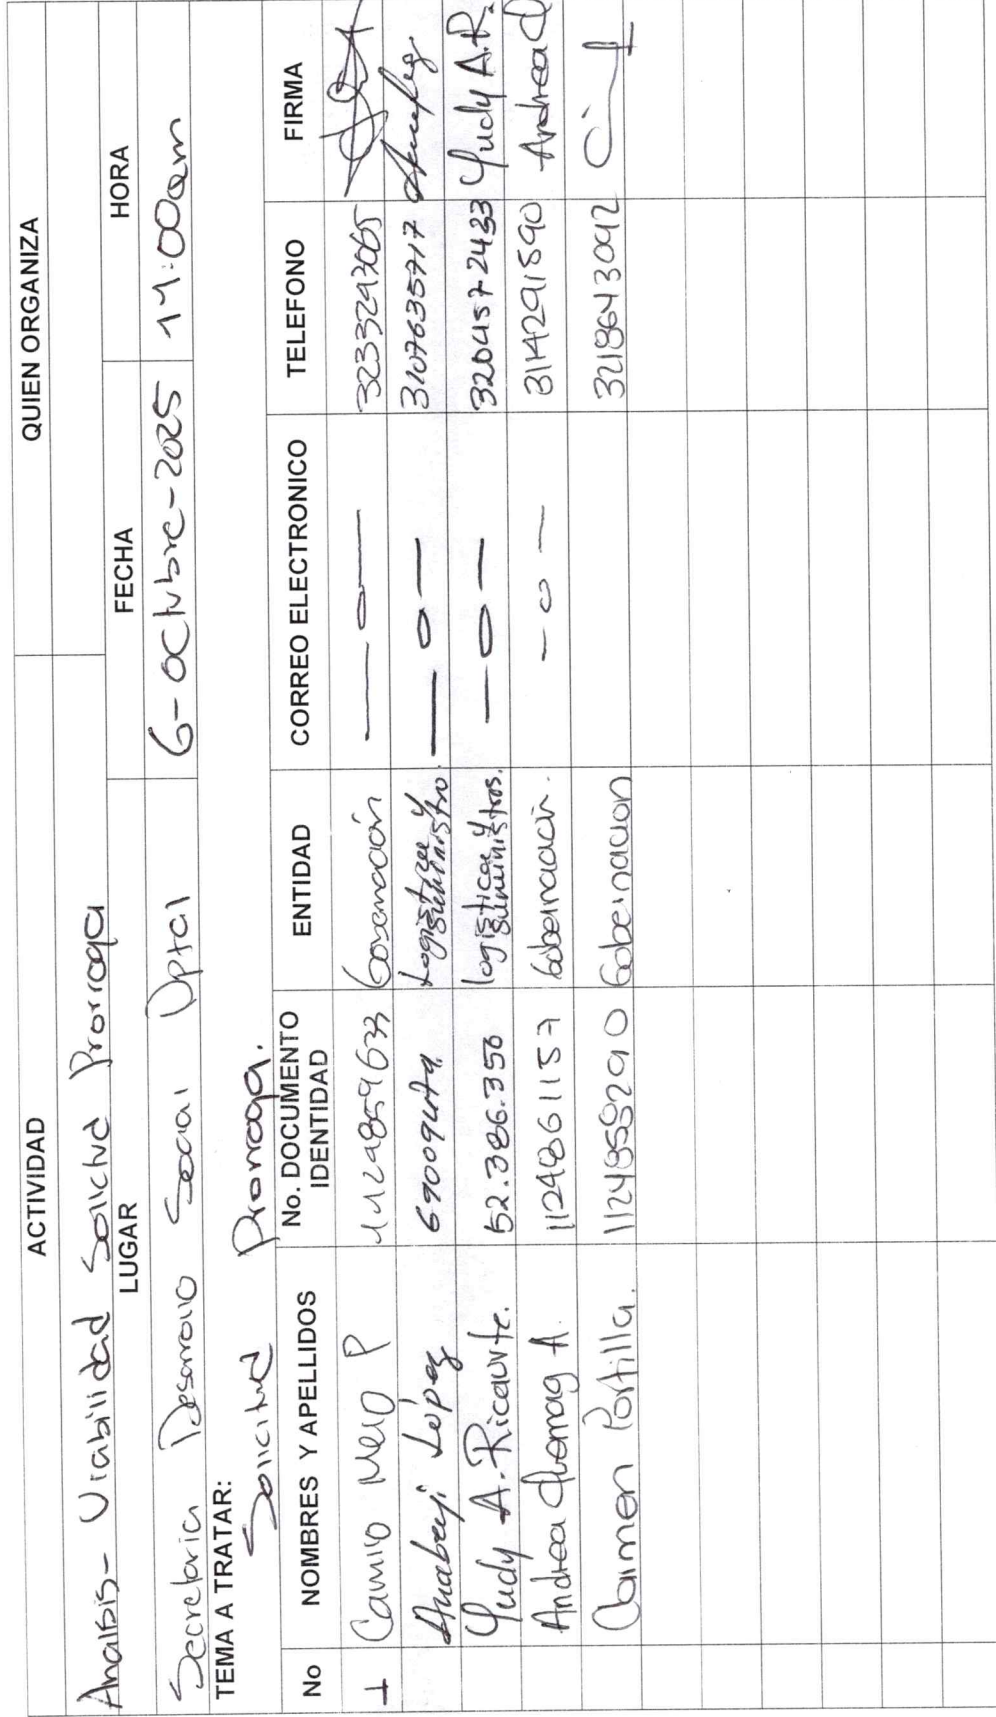 ACTIVIDAD QUIEN ORGANIZA
Analisis - Viabilidad Solicitud Prorroga
LUGAR FECHA HORA
Secretaria Desarrollo Social Dptal 6-Octubre-2025 11:00am
TEMA A TRATAR:
Solicitud Prorroga.
No NOMBRES Y APELLIDOS No. DOCUMENTO IDENTIDAD ENTIDAD CORREO ELECTRONICO TELEFONO FIRMA
1 Camilo Melo P 1124859633 Gobernación —o—
Anabeyi López Logistica y Suministro. —o— 3107635717
Yudy A. Ricaurte. 52.386.356 logistica y Suministros. —o— 3204572433 Yudy A.R.
Andrea Chomag A. 1124861157 Gobernación. -o- 3114291590 Andrea Ch
Carmen Portilla. 1124858290 Gobernacion 3218643092